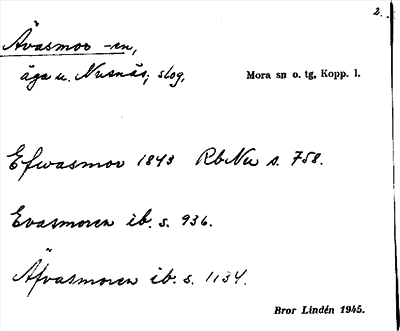 2.
Ävasmor -en,
äga u. Nusnäs; skog,
Mora sn o. tg, Kopp. l.
Efwasmor 1843 RbNu s. 758.
Evasmoren ib. s. 936.
Äfvasmoren ib. s. 1134.
Bror Lindén 1945.